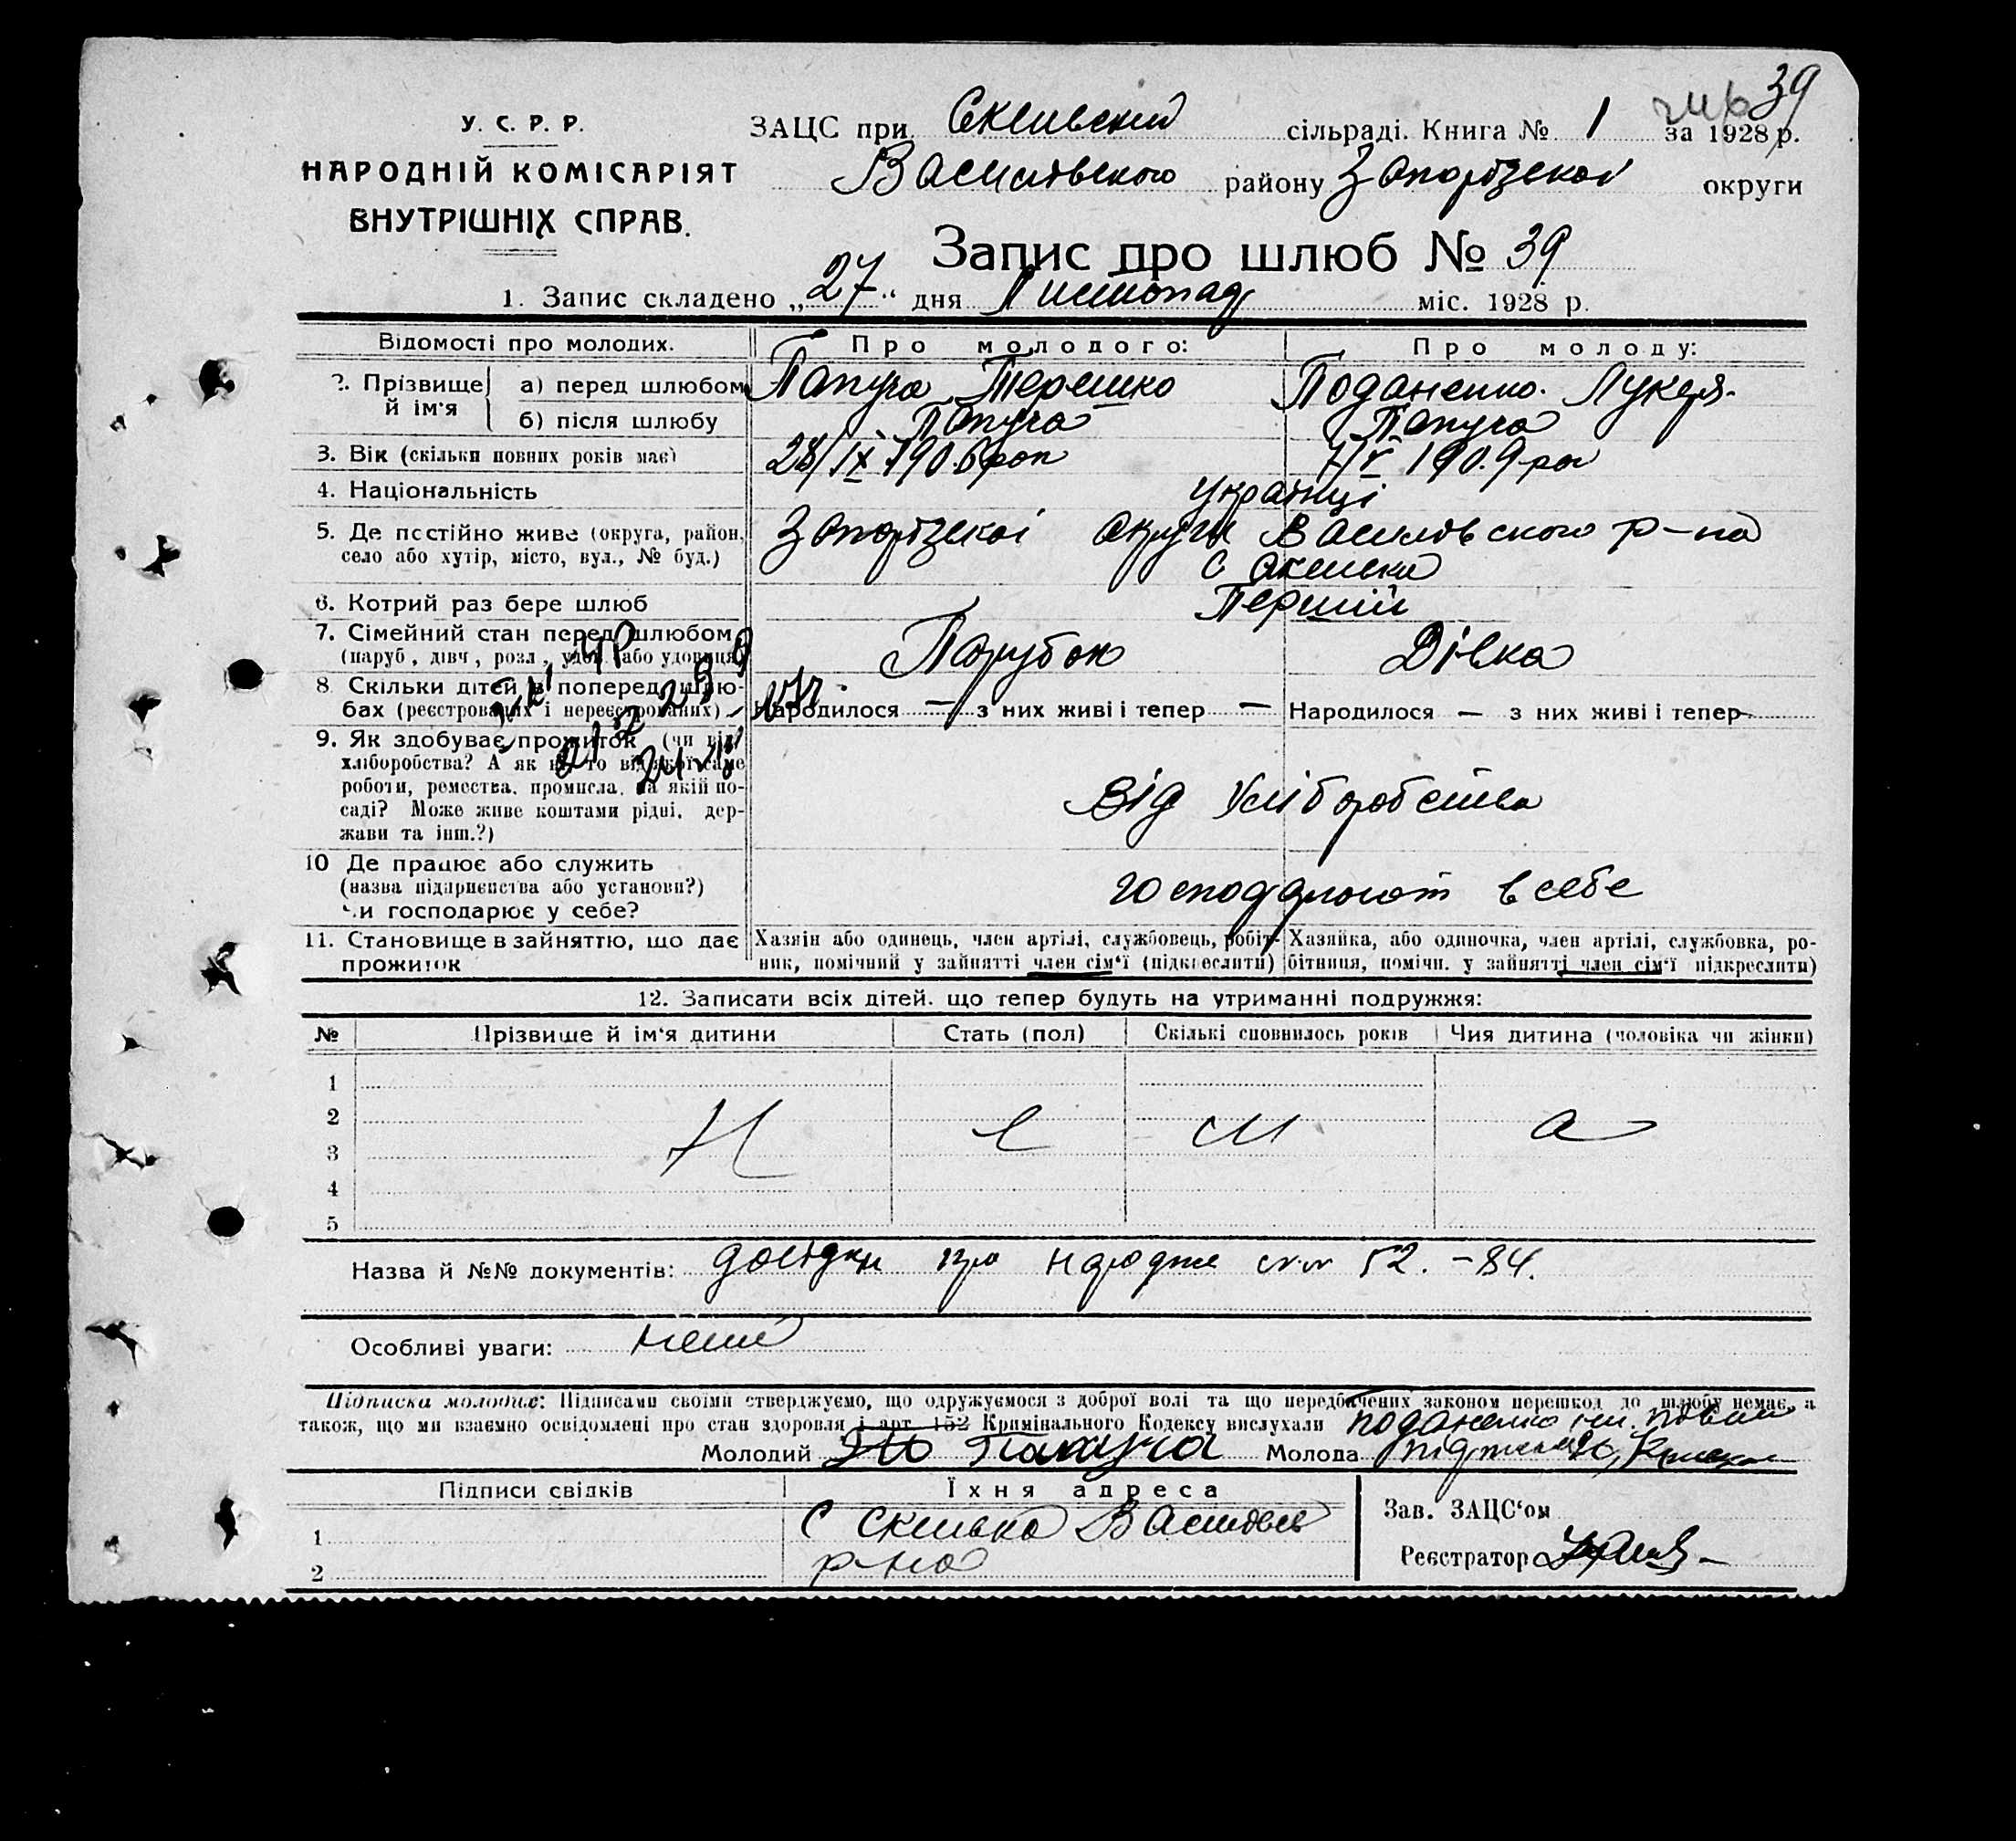 39
У. С. Р. Р.
НАРОДНІЙ КОМІСАРІЯТ
ВНУТРІШНІХ СПРАВ.
ЗАЦС при Скельський сільраді. Книга № 1 за 1928 р.
Василівського району Запорізької округи
Запис про шлюб № 39
1. Запис складено „27“ дня Листопад міс. 1928 р.
Відомості про молодих. Про молодого: Про молоду:
2. Прізвище й ім'я а) перед шлюбом Папуга Терешко Поданенко Лукеря
б) після шлюбу Папуга Папуга
3. Вік (скільки повних років має) 28/IX 1906 рок 7/V 1909 рок
4. Національність українці
5. Де постійно живе (округа, район, Запорізскої округи Василівского р-на
село або хутір, місто, вул., № буд.) с Скельки
6. Котрий раз бере шлюб Перший
7. Сімейний стан перед шлюбом Парубок Дівка
(паруб, дівч, розл, удов. або удовиця)
8 Скільки дітей в поперед. шлю-
бах (реєстрованих і нереєстрованих) Народилося — з них живі і тепер — Народилося — з них живі і тепер —
9. Як здобуває прожиток (чи від
хліборобства? А як ні, то від якої саме
роботи, ремества, промисла, на якій по-
саді? Може живе коштами рідні, дер- від хліборобства
жави та інш.?)
10 Де працює або служить
(назва підприємства або установи?) господарюют в себе
чи господарює у себе?
11. Становище в зайняттю, що дає Хазяїн або одинець, член артілі, службовець, робіт- Хазяйка, або одиночка, член артілі, службовка, ро-
прожиток ник, помічний у зайнятті член сім'ї (підкреслити) бітниця, помічн. у зайнятті член сім'ї підкреслити)
12. Записати всіх дітей, що тепер будуть на утриманні подружжя:
№ Прізвище й ім'я дитини Стать (пол) Скількі сповнилось років Чия дитина (чоловіка чи жінки)
1
2 Н е м а
3
4
5
Назва й №№ документів: довідки про народже 52. - 84.
Особливі уваги: нема
Підписка молодих: Підписами своїми стверджуємо, що одружуємося з доброї волі та що передбачених законом перешкод до шлюбу немає, а
також, що ми взаємно освідомлені про стан здоровля і арт. 152 Кримінального Кодексу вислухали поданенко
Молодий Папуга Молода
Підписи свідків Їхня адреса
1 с Скелька Василівск Зав. ЗАЦС'ом
2 р-на Реєстратор